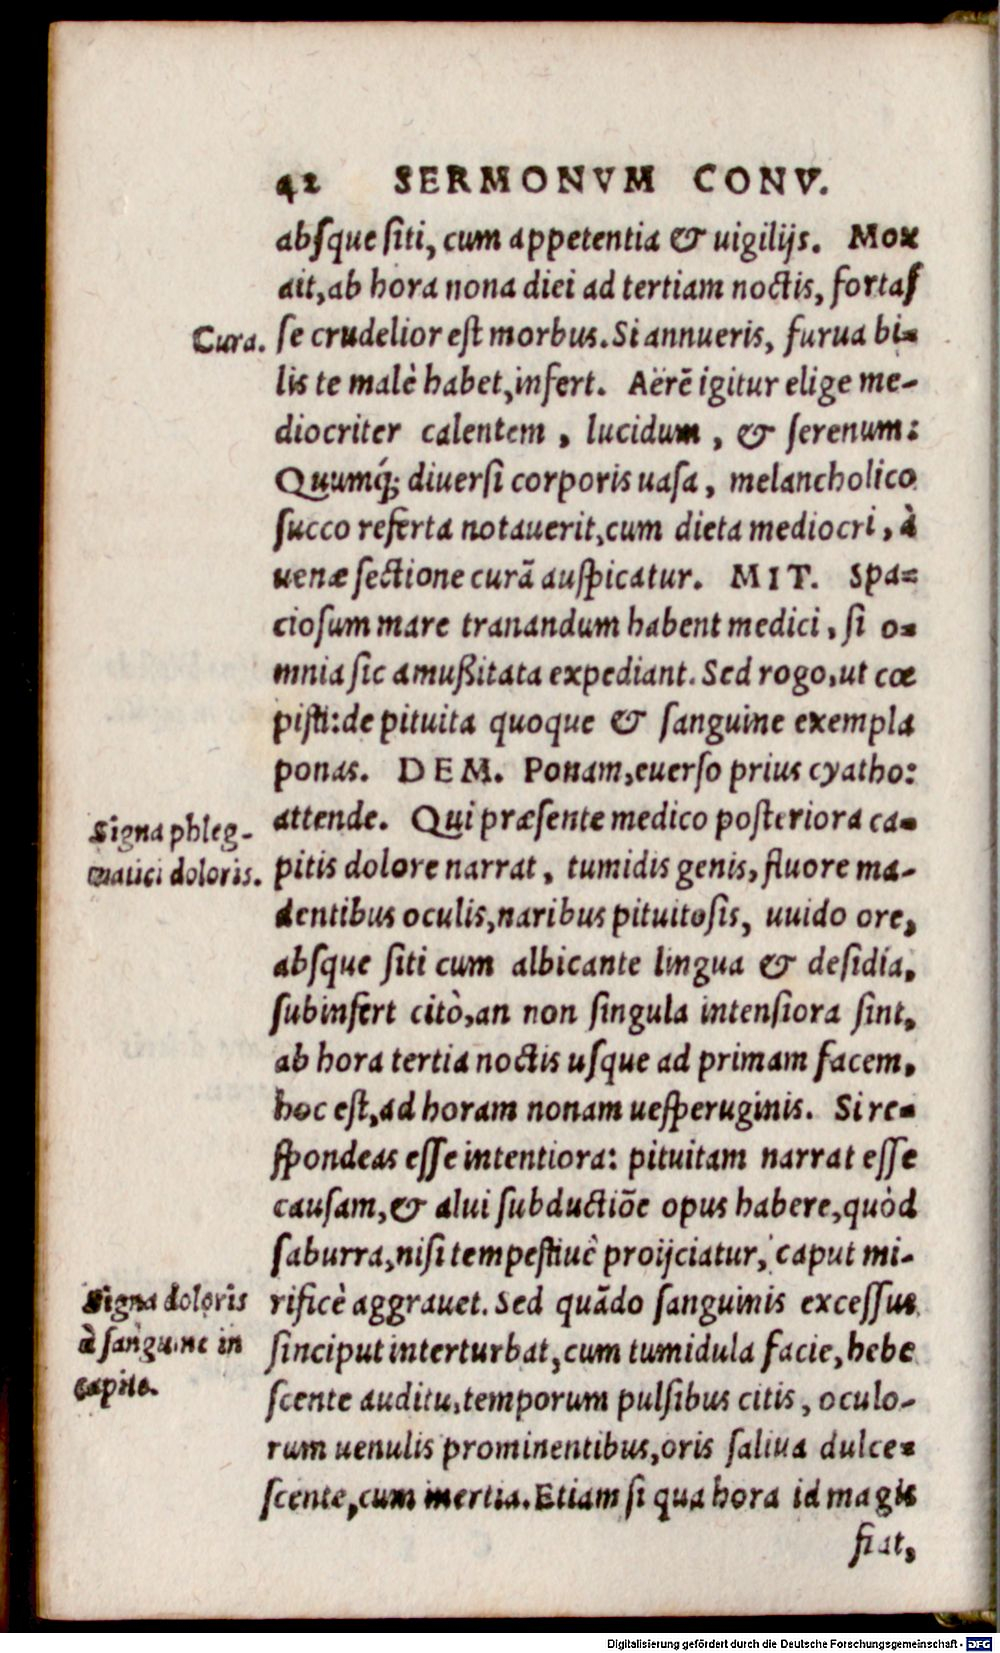 42 SERMONVM CONV.
absque siti, cum appetentia & uigilijs. Mox
ait, ab hora nona diei ad tertiam noctis, fortas
Cura.
se crudelior est morbus. Si annueris, furua bi-
lis te malè habet, infert. Aërẽ igitur elige me-
diocriter calentem, lucidum, & serenum:
Quumq́; diuersi corporis uasa, melancholico
succo referta notauerit, cum dieta mediocri, à
uenæ sectione curã auspicatur. MIT. Spa-
ciosum mare tranandum habent medici, si o-
mnia sic amußitata expediant. Sed rogo, ut cœ
pisti: de pituita quoque & sanguine exempla
ponas. DEM. Ponam, euerso prius cyatho:
Signa phleg-
matici doloris.
attende. Qui præsente medico posteriora ca-
pitis dolore narrat, tumidis genis, fluore ma-
dentibus oculis, naribus pituitosis, uuido ore,
absque siti cum albicante lingua & desidia,
subinfert citò, an non singula intensiora sint,
ab hora tertia noctis usque ad primam facem,
hoc est, ad horam nonam uesperuginis. Si re-
spondeas esse intentiora: pituitam narrat esse
causam, & alui subductiõe opus habere, quòd
saburra, nisi tempestiuè proijciatur, caput mi-
Signa doloris
à sanguine in
capite.
rificè aggrauet. Sed quãdo sanguinis excessus
sinciput interturbat, cum tumidula facie, hebe
scente auditu, temporum pulsibus citis, oculo-
rum uenulis prominentibus, oris saliua dulce-
scente, cum inertia. Etiam si qua hora id magis
fiat,
Digitalisierung gefördert durch die Deutsche Forschungsgemeinschaft - DFG